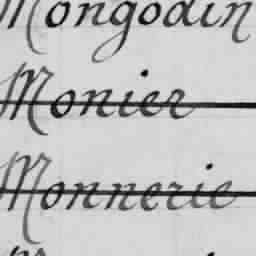 Mongodin
Monier
Monnerie